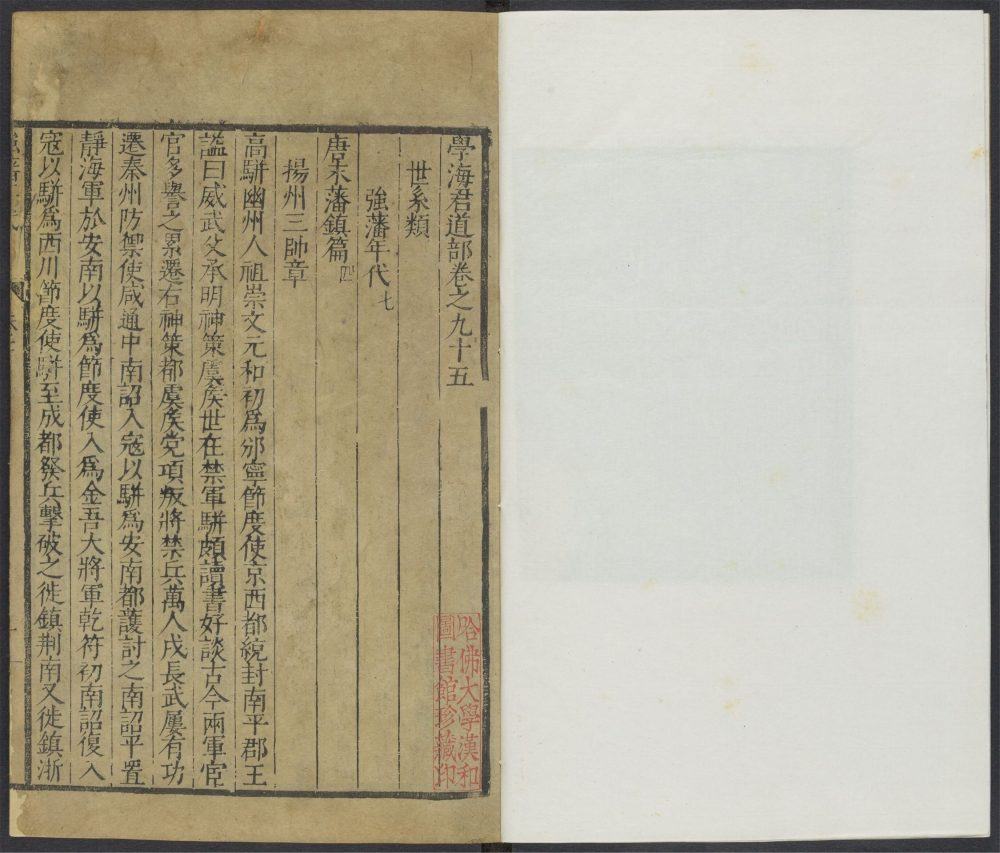 學海君道部卷之九十五
世系類
強藩年代七
唐末藩鎮篇四
揚州三帥章
高駢幽州人祖崇文元和初為邠寧節度使京西都統封南平郡王
謚曰威武父承明神策虞侯世在禁軍駢頗讀書好談古今兩軍宦
官多譽之累遷右神策都虞侯党項叛將禁兵萬人戍長武屢有功
遷秦州防禦使咸通中南詔入寇以駢為安南都護討之南詔平置
靜海軍於安南以駢為節度使入為金吾大將軍乾符初南詔復入
寇以駢為西川節度使駢至成都發兵擊破之徙鎮荆南又徙鎮浙
哈佛大學漢和
圖書館珍藏印